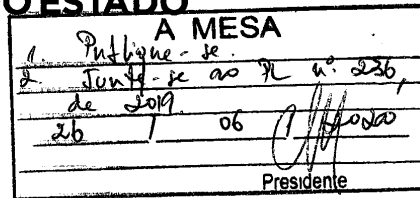 O ESTADO
A MESA
1. Publique-se.
2. Junte-se ao PL nº. 236,
de 2019
26 / 06 / 2020
Presidente